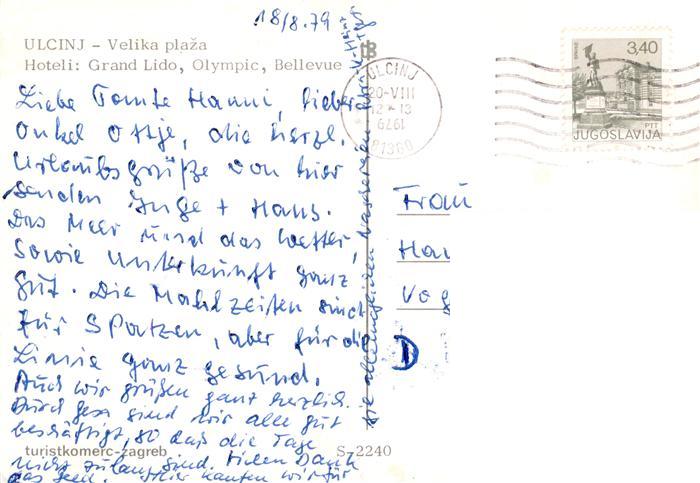 18/8.79
ULCINJ – Velika plaža
Hoteli: Grand Lido, Olympic, Bellevue
Liebe Tante Hanni, lieber
Onkel Ottje, die herzl.
Urlaubsgrüße von hier
senden Inge + Hans.
Das Meer und das Wetter,
sowie Unterkunft ganz
gut. Die Mahlzeiten sind
für Spatzen, aber für die
Linie ganz gesund.
Auch wir grüßen ganz herzlich.
sind wir alle gut
beschäftigt, so daß die Tage
turistkomerc-zagreb
S-2240
nicht zu lang sind. Vielen Dank
das Hier kauften wir für
die
ULCINJ
20-VIII
12-13
1979
81360
3,40
PTT
JUGOSLAVIJA
Frau
Han
Vog
D